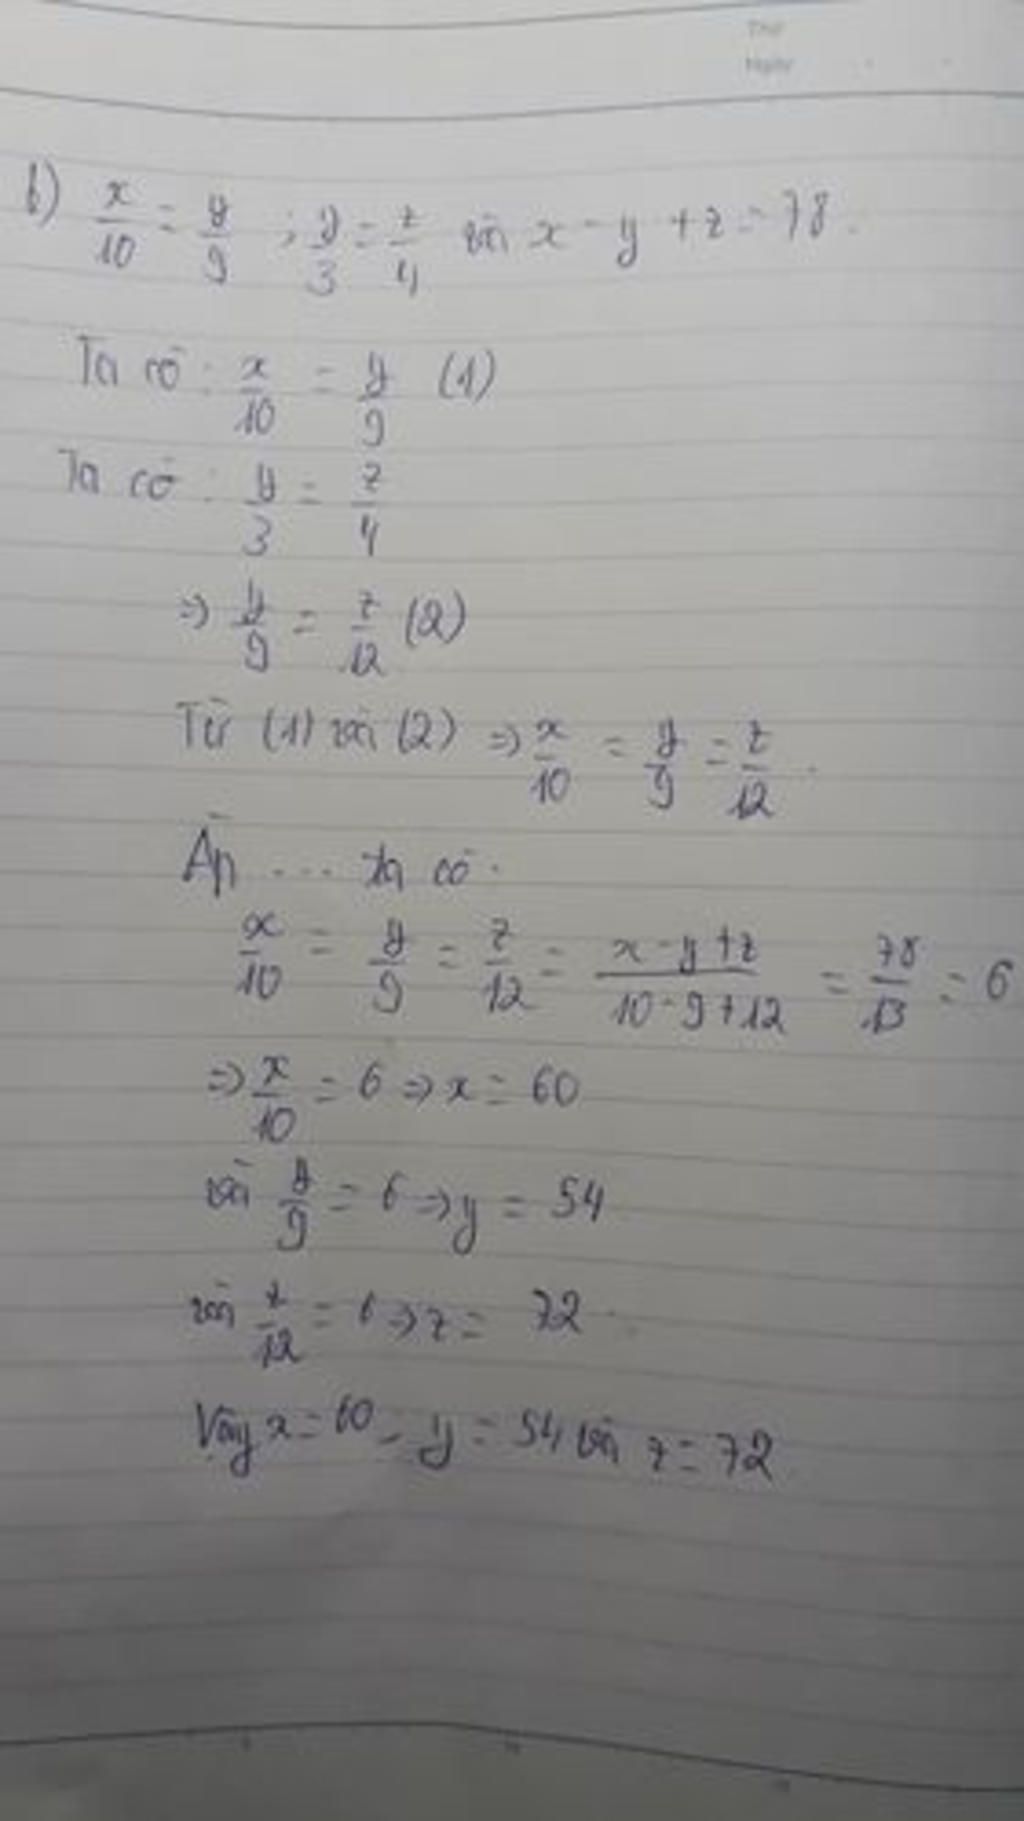 Thứ
Ngày
b) x/10 = y/9 ; y/3 = z/4 và x - y + z = 78.
Ta có : x/10 = y/9 (1)
Ta có : y/3 = z/4
=> y/9 = z/12 (2)
Từ (1) và (2) => x/10 = y/9 = z/12.
Áp ... ta có.
x/10 = y/9 = z/12 = x - y + z/10 - 9 + 12 = 78/13 = 6
=> x/10 = 6 => x = 60
và y/9 = 6 => y = 54
và z/12 = 6 => z = 72.
Vậy x = 60, y = 54 và z = 72